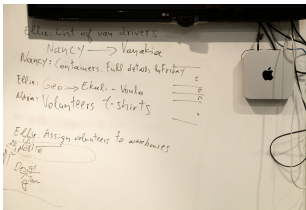 Ellie: List of van drivers
Nancy → Vanakia
Nancy: Containers Full details by Friday
Ellie: Geo → Ekali - Voula
Volunteers T-shirts
Effie: Assign volunteers to warehouses